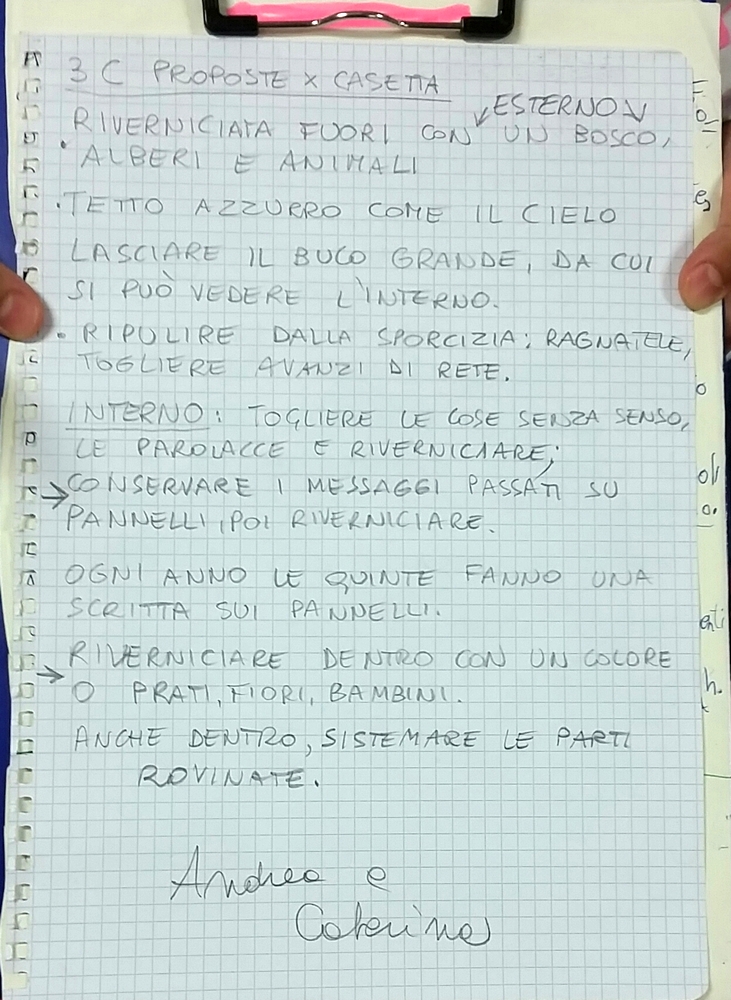 3 C PROPOSTE x CASETTA
↙ESTERNO↘
RIVERNICIATA FUORI CON UN BOSCO,
• ALBERI E ANIMALI
• TETTO AZZURRO COME IL CIELO
LASCIARE IL BUCO GRANDE, DA CUI
SI PUÒ VEDERE L'INTERNO.
• RIPULIRE DALLA SPORCIZIA; RAGNATELE,
TOGLIERE AVANZI DI RETE.
INTERNO: TOGLIERE LE COSE SENZA SENSO,
LE PAROLACCE E RIVERNICIARE;
→ CONSERVARE I MESSAGGI PASSATI SU
PANNELLI, POI RIVERNICIARE.
OGNI ANNO LE QUINTE FANNO UNA
SCRITTA SUI PANNELLI.
→ RIVERNICIARE DENTRO CON UN COLORE
O PRATI, FIORI, BAMBINI.
ANCHE DENTRO, SISTEMARE LE PARTI
ROVINATE.
Andrea e
Caterina